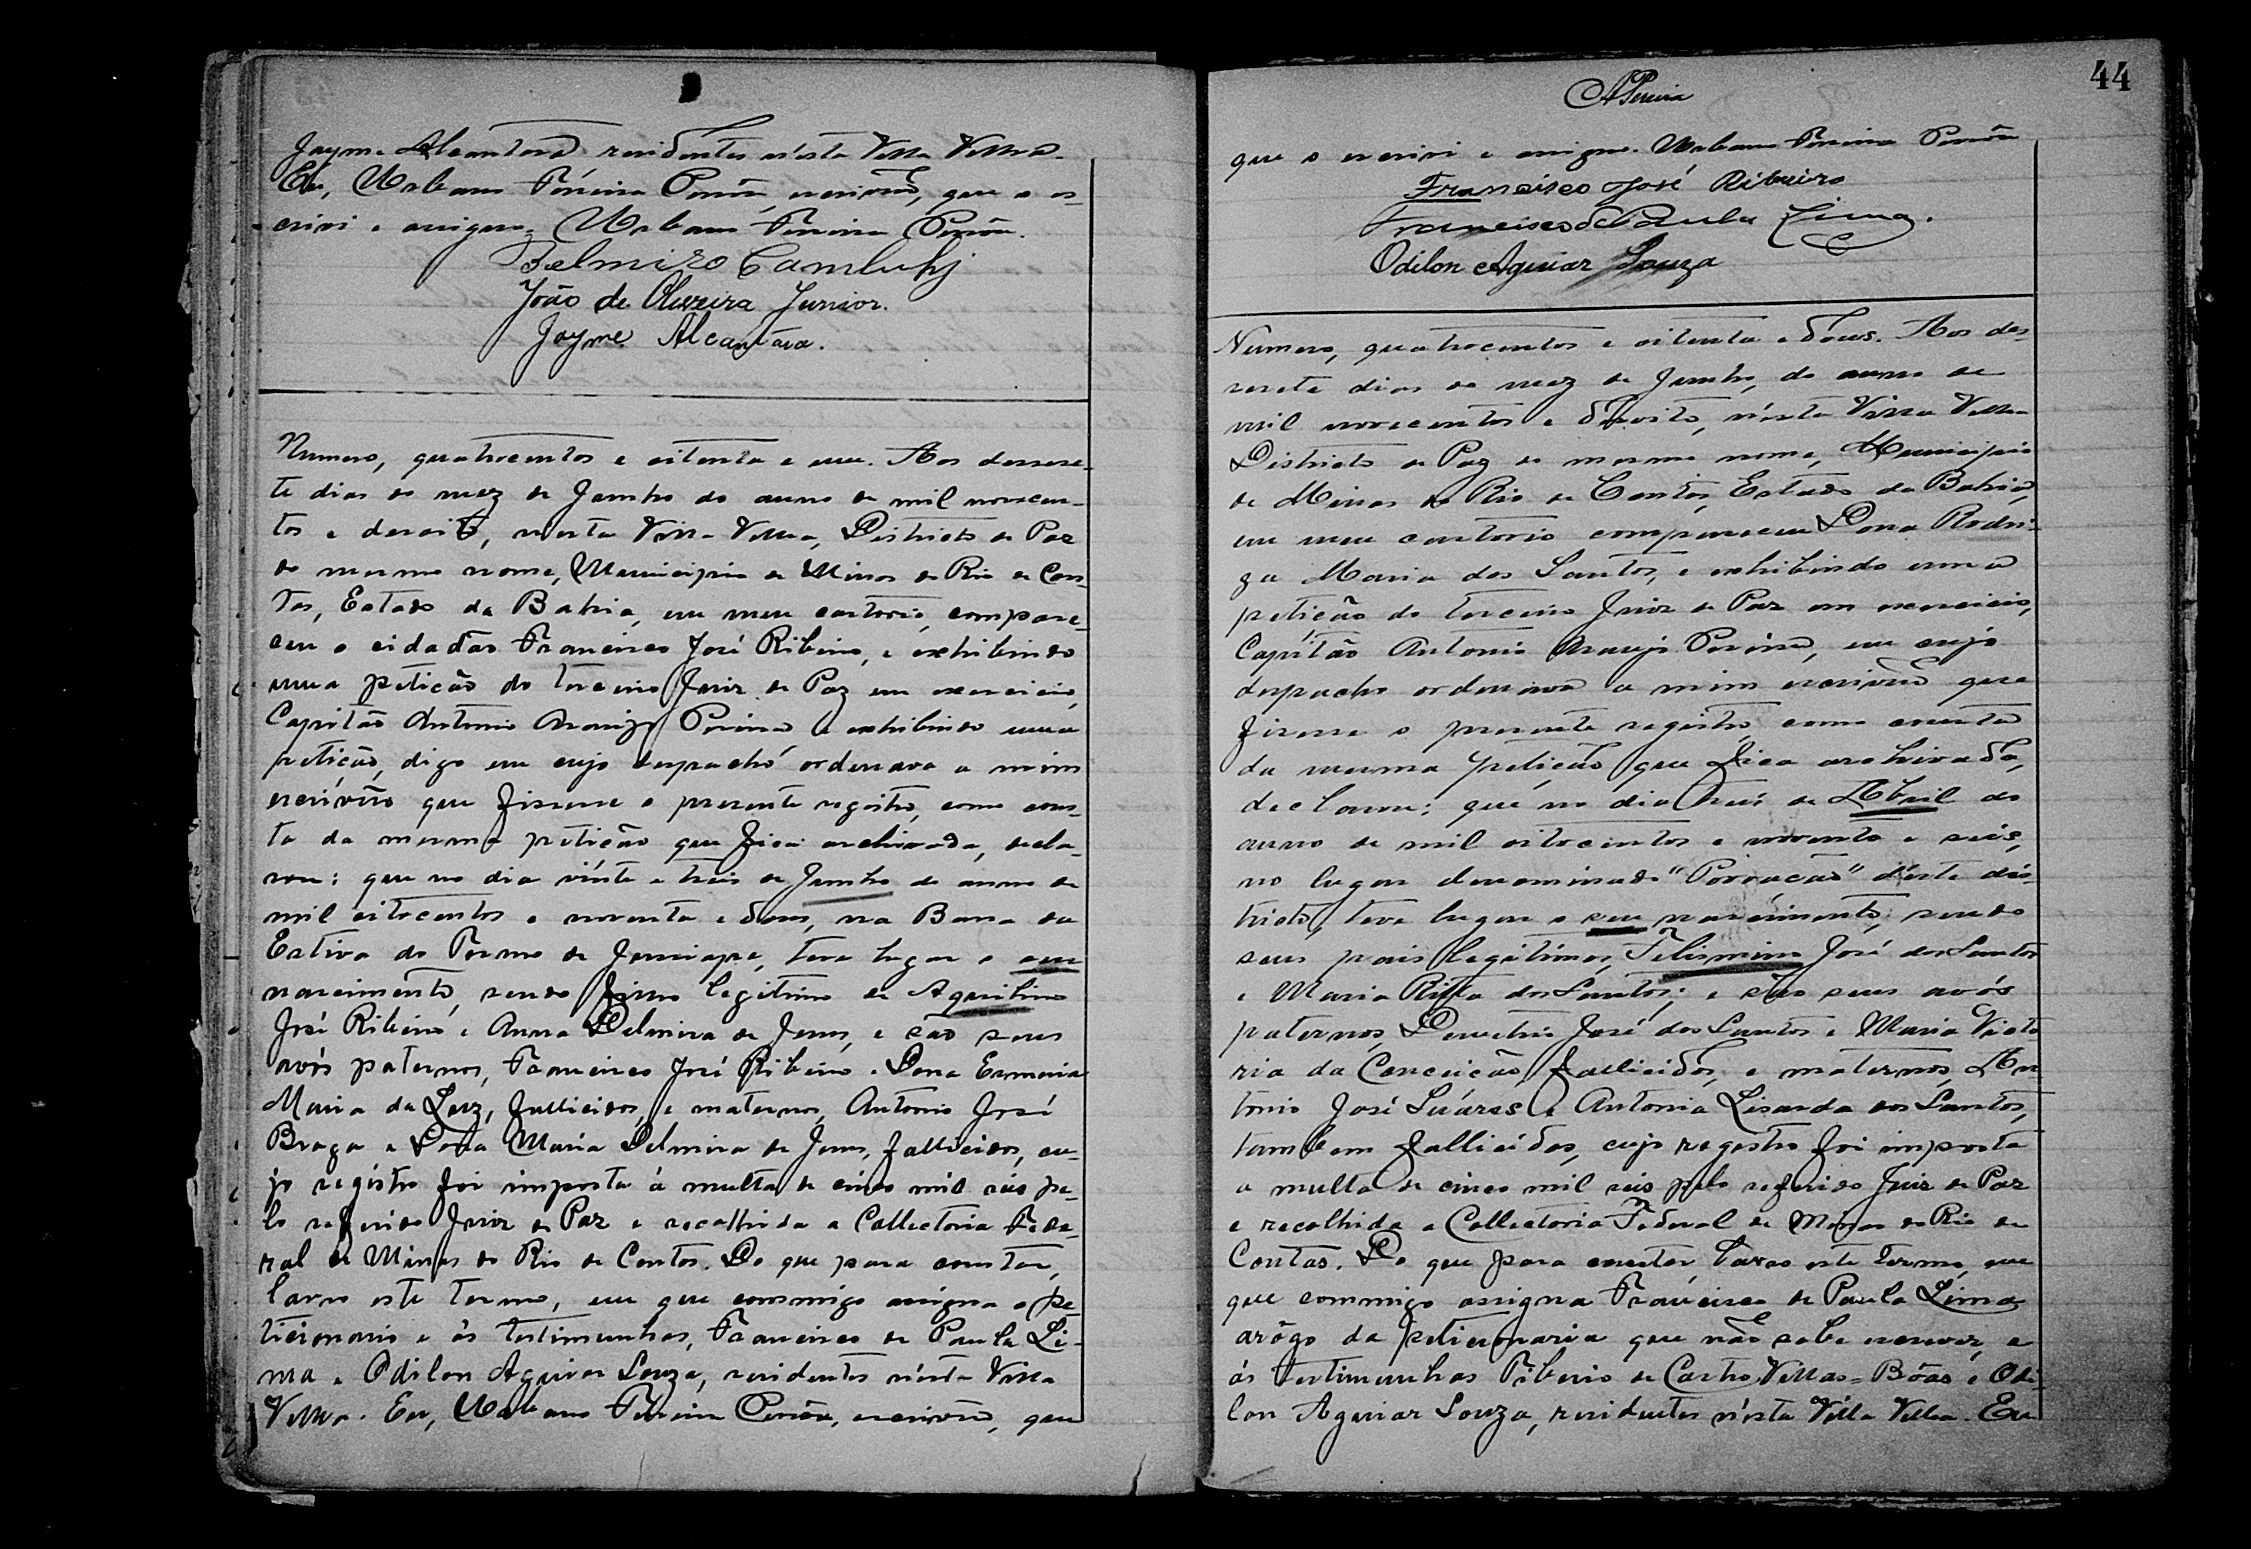 Jayme Alcantara residentes n'esta Villa Velha.
Eu, Urbano Pereira, escrivão, que o es-
crivi e assigno. Urbano Pereira
Belmiro
João de Oliveira Junior.
Jayme Alcantara.
Numero, quatrocentos e oitenta e um. Aos desese-
te dias do mez de Junho do anno de mil novecen-
tos e desoito, n'esta Villa Velha, Districto de Paz
do mesmo nome, Municipio de Minas do Rio de Con-
tas, Estado da Bahia, em meu cartorio, compare-
ceu o cidadão Francisco José Ribeiro, e exhibindo
uma petição do terceiro Juiz de Paz em exercicio,
Capitão Antonio Araujo Pereira e exhibindo uma
petição, digo em cujo despacho ordenava a mim
escrivão que fizesse o presente registro, como cons-
ta da mesma petição que fica archivada, decla-
rou: que no dia vinte e treis de Junho do anno de
mil oitocentos e noventa e dous, na Barra da
Estiva do Termo de Jussiape, teve lugar o seu
nascimento, sendo filho legitimo de Aquilino
José Ribeiro e Anna Delmira de Jesus, e são seus
avós paternos, Francisco José Ribeiro e Dona Ermaria
Maria da Luz, fallicidos, e maternos, Antonio José
Braga e Dona Maria Delmira de Jesus, fallicidos, cu-
jo registro foi imposta á multa de cinco mil reis pe-
lo referido Juiz de Paz e recolhida a Collectoria Fede-
ral de Minas do Rio de Contas. Do que para constar,
lavro este termo, em que commigo assigna o pe-
ticionario e ás testimunhas, Francisco de Paula Li-
ma e Odilon Aguiar Souza, residentes n'esta Villa
Velha. Eu, Urbano Pereira, escrivão, que
44
APereira
que o escrivi e assigno. Urbano Pereira
Francisco José Ribeiro
Francisco de Paula Lima.
Odilon Aguiar Souza
Numero, quatrocentos e oitenta e dous. Aos des-
esete dias do mez de Junho, do anno de
mil novecentos e desoito, n'esta Villa Velha
Districto de Paz do mesmo nome, Municipio
de Minas do Rio de Contas, Estado da Bahia,
em meu cartorio compareceu Dona Rodri-
ga Maria dos Santos, e exhibindo uma
petição do terceiro Juiz de Paz em exercicio,
Capitão Antonio Araujo Pereira, em cujo
despacho ordenava a mim escrivão que
fizesse o presente registro, como consta
da mesma petição que fica archivada,
declarou: que no dia treis de Abril do
anno de mil oitocentos e noventa e seis,
no lugar denominado d'este dis-
tricto, teve lugar o seu nascimento; sendo
seus pais legitimos, Felismino José dos Santos
e Maria Ritta dos Santos; e são seus avós
paternos, Demetrio José dos Santos e Maria Victo
ria da Conceicão, fallicidos, e maternos, An
tonio José Suáres e Antonia Lisarda dos Santos,
tambem fallicidos, cujo registro foi imposta
a multa de cinco mil reis pelo referido Juiz de Paz
e recolhida a Collectoria Federal de Minas do Rio de
Contas. Do que para constar lavro este termo, em
que commigo assigna Francisco de Paula Lima
arôgo da peticionaria que não sabe escrever, e
ás testimunhas Tiberio de Castro Villas=Bôas e Odi-
lon Aguiar Souza, residentes n'esta Villa Velha. Eu